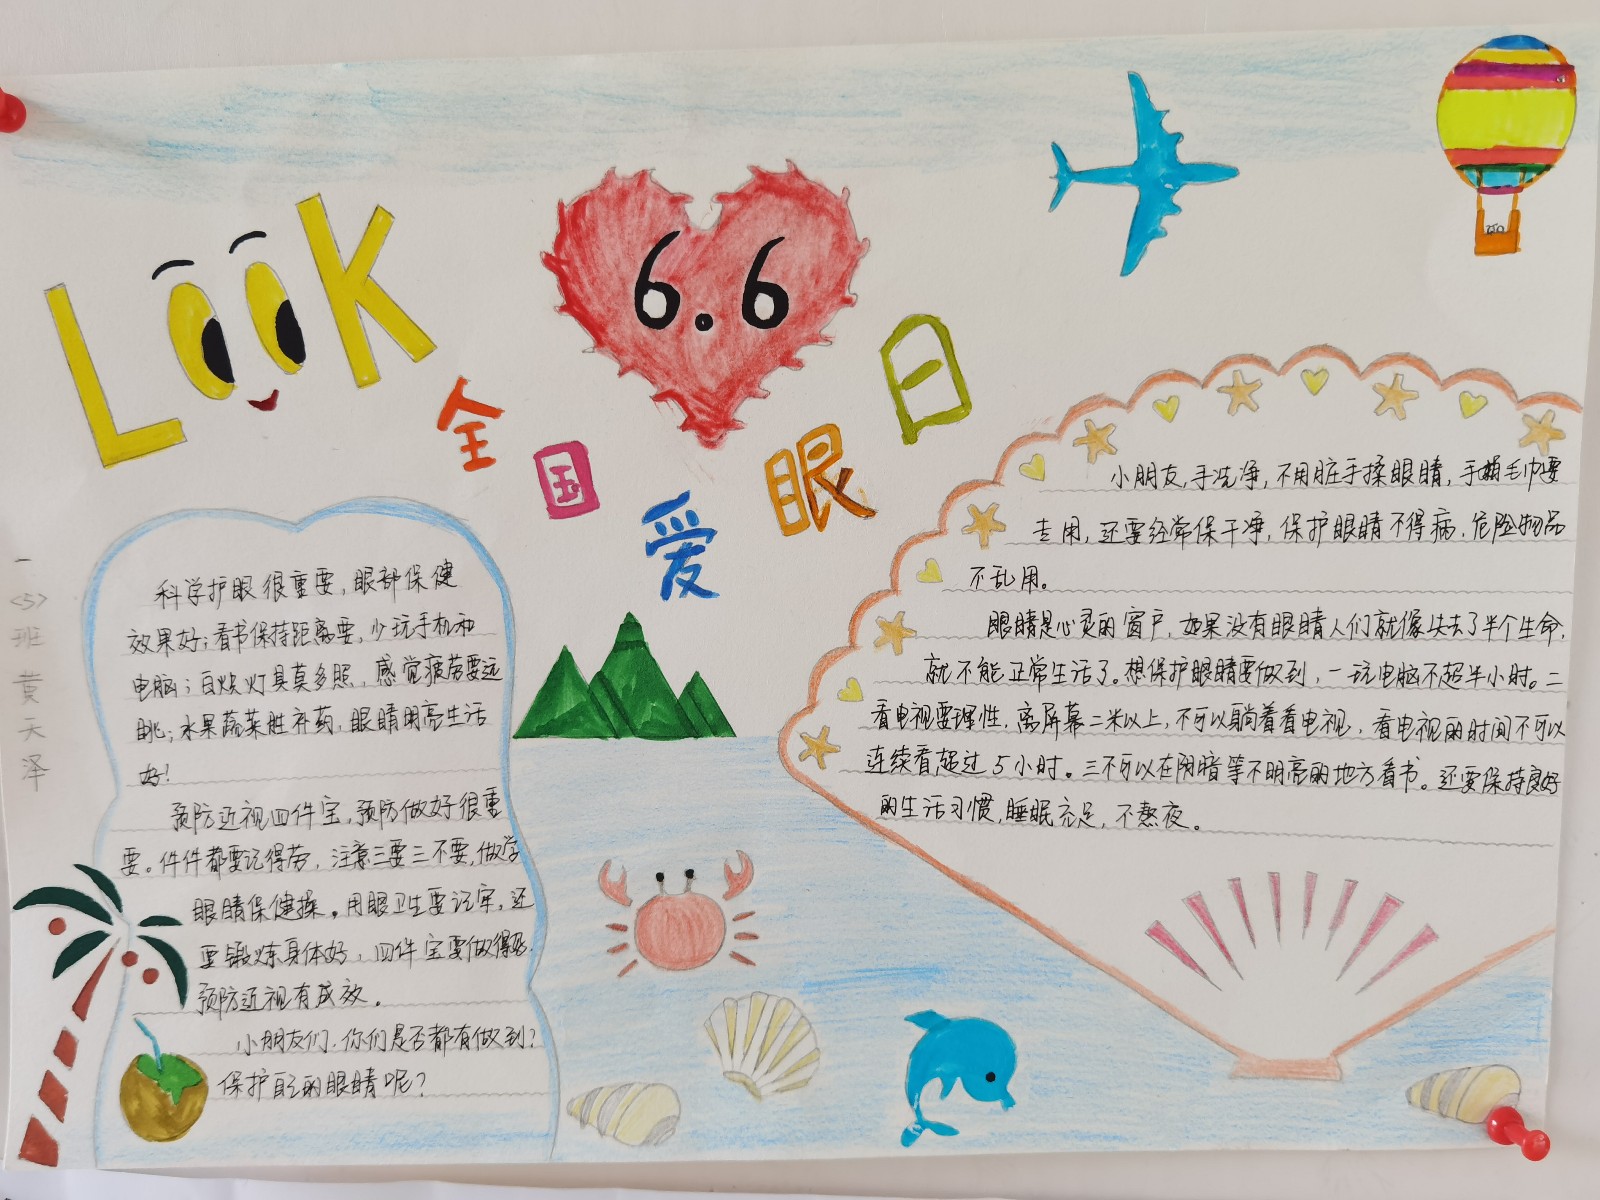 LOOK
6.6
全国爱眼日
一
<5>
班
黄
天
泽
科学护眼很重要,眼部保健
效果好;看书保持距离要,少玩手机和
电脑;白炽灯具莫多照,感觉疲劳要远
眺;水果蔬菜胜补药,眼睛明亮生活
好!
预防近视四件宝,预防做好很重
要。件件都要记得劳,注意三要三不要,做学
眼睛保健操。用眼卫生要记牢,还
要锻炼身体好,四件宝要做得到
预防近视有成效。
小朋友们,你们是否都有做到?
保护自己的眼睛呢?
小朋友,手洗净,不用脏手揉眼睛,手绢毛巾要
专用,还要经常保干净,保护眼睛不得病,危险物品
不乱用。
眼睛是心灵的窗户,如果没有眼睛人们就像失去了半个生命,
就不能正常生活了。想保护眼睛要做到,一玩电脑不超半小时。二
看电视要理性,离屏幕二米以上,不可以躺着看电视,看电视的时间不可以
连续看超过5小时。三不可以在阴暗等不明亮的地方看书。还要保持良好
的生活习惯,睡眠充足,不熬夜。